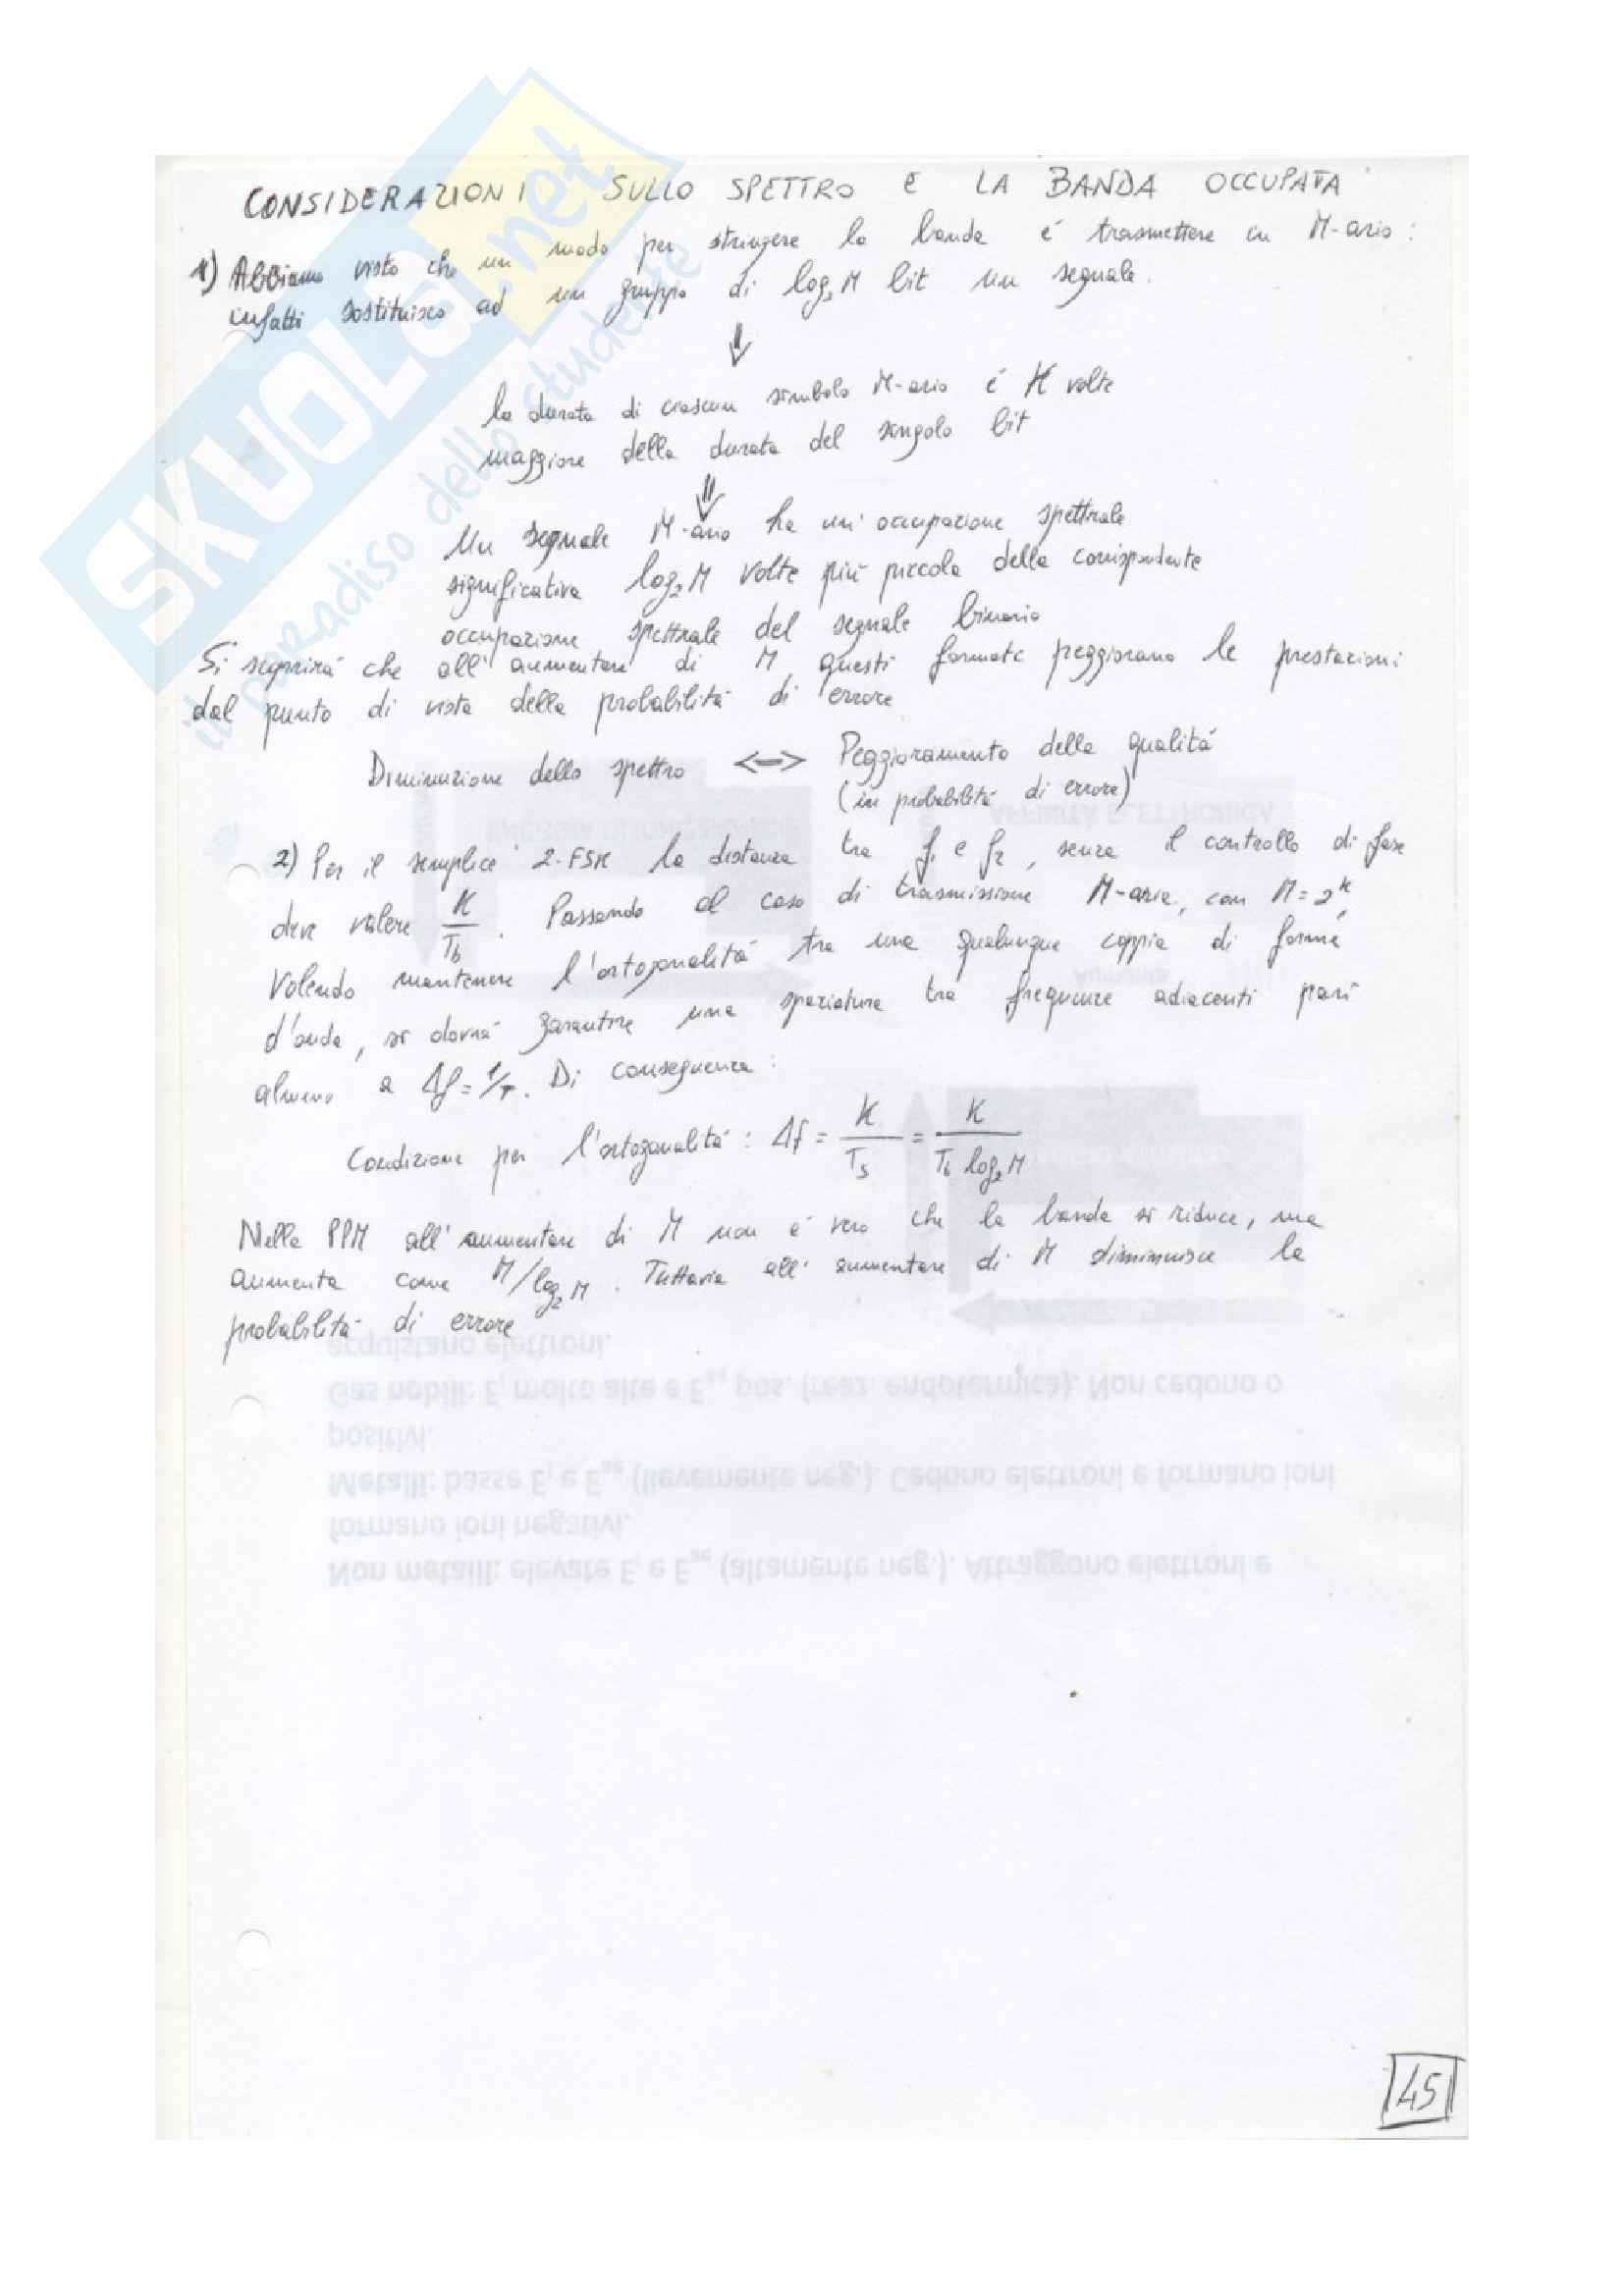 CONSIDERAZIONI SULLO SPETTRO E LA BANDA OCCUPATA
1) Abbiamo visto che un modo per stringere la banda é trasmettere in M-ario:
infatti sostituisco ad un gruppo di log₂M bit un segnale.
⇓
la durata di ciascun simbolo M-ario é K volte
maggiore della durata del singolo bit
⇓
Un segnale M-ario ha un'occupazione spettrale
significativa log₂M volte più piccola della corrispondente
occupazione spettrale del segnale binario
Si scoprirá che all'aumentare di M questi formati peggiorano le prestazioni
dal punto di vista della probabilitá di errore
Diminuzione dello spettro <=> Peggioramento della qualitá
(in probabilitá di errore)
2) Per il semplice 2-FSK la distanza tra f₁ e f₂, senza il controllo di fase
deve valere K/T_b. Passando al caso di trasmissione M-aria, con M=2^K,
Volendo mantenere l'ortogonalitá tra una qualunque coppia di forme
d'onda, si dovrá garantire una spaziatura tra frequenze adiacenti pari
almeno a Δf=1/T. Di conseguenza:
Condizione per l'ortogonalitá: Δf = K/T_s = K/(T_b log₂M)
Nella PPM all'aumentare di M non é vero che la banda si riduce, ma
aumenta come M/log₂M. Tuttavia all'aumentare di M diminuisce la
probabilitá di errore
acquistano elettroni.
Gas nobili: E_i molto alte e E_ae pos. (reaz. endotermica). Non cedono o
positivi.
Metalli: basse E_i e E_ae (lievemente neg.). Cedono elettroni e formano ioni
formano ioni negativi.
Non metalli: elevate E_i e E_ae (altamente neg.). Attraggono elettroni e
45
SKUOLA.net
il paradiso dello studente